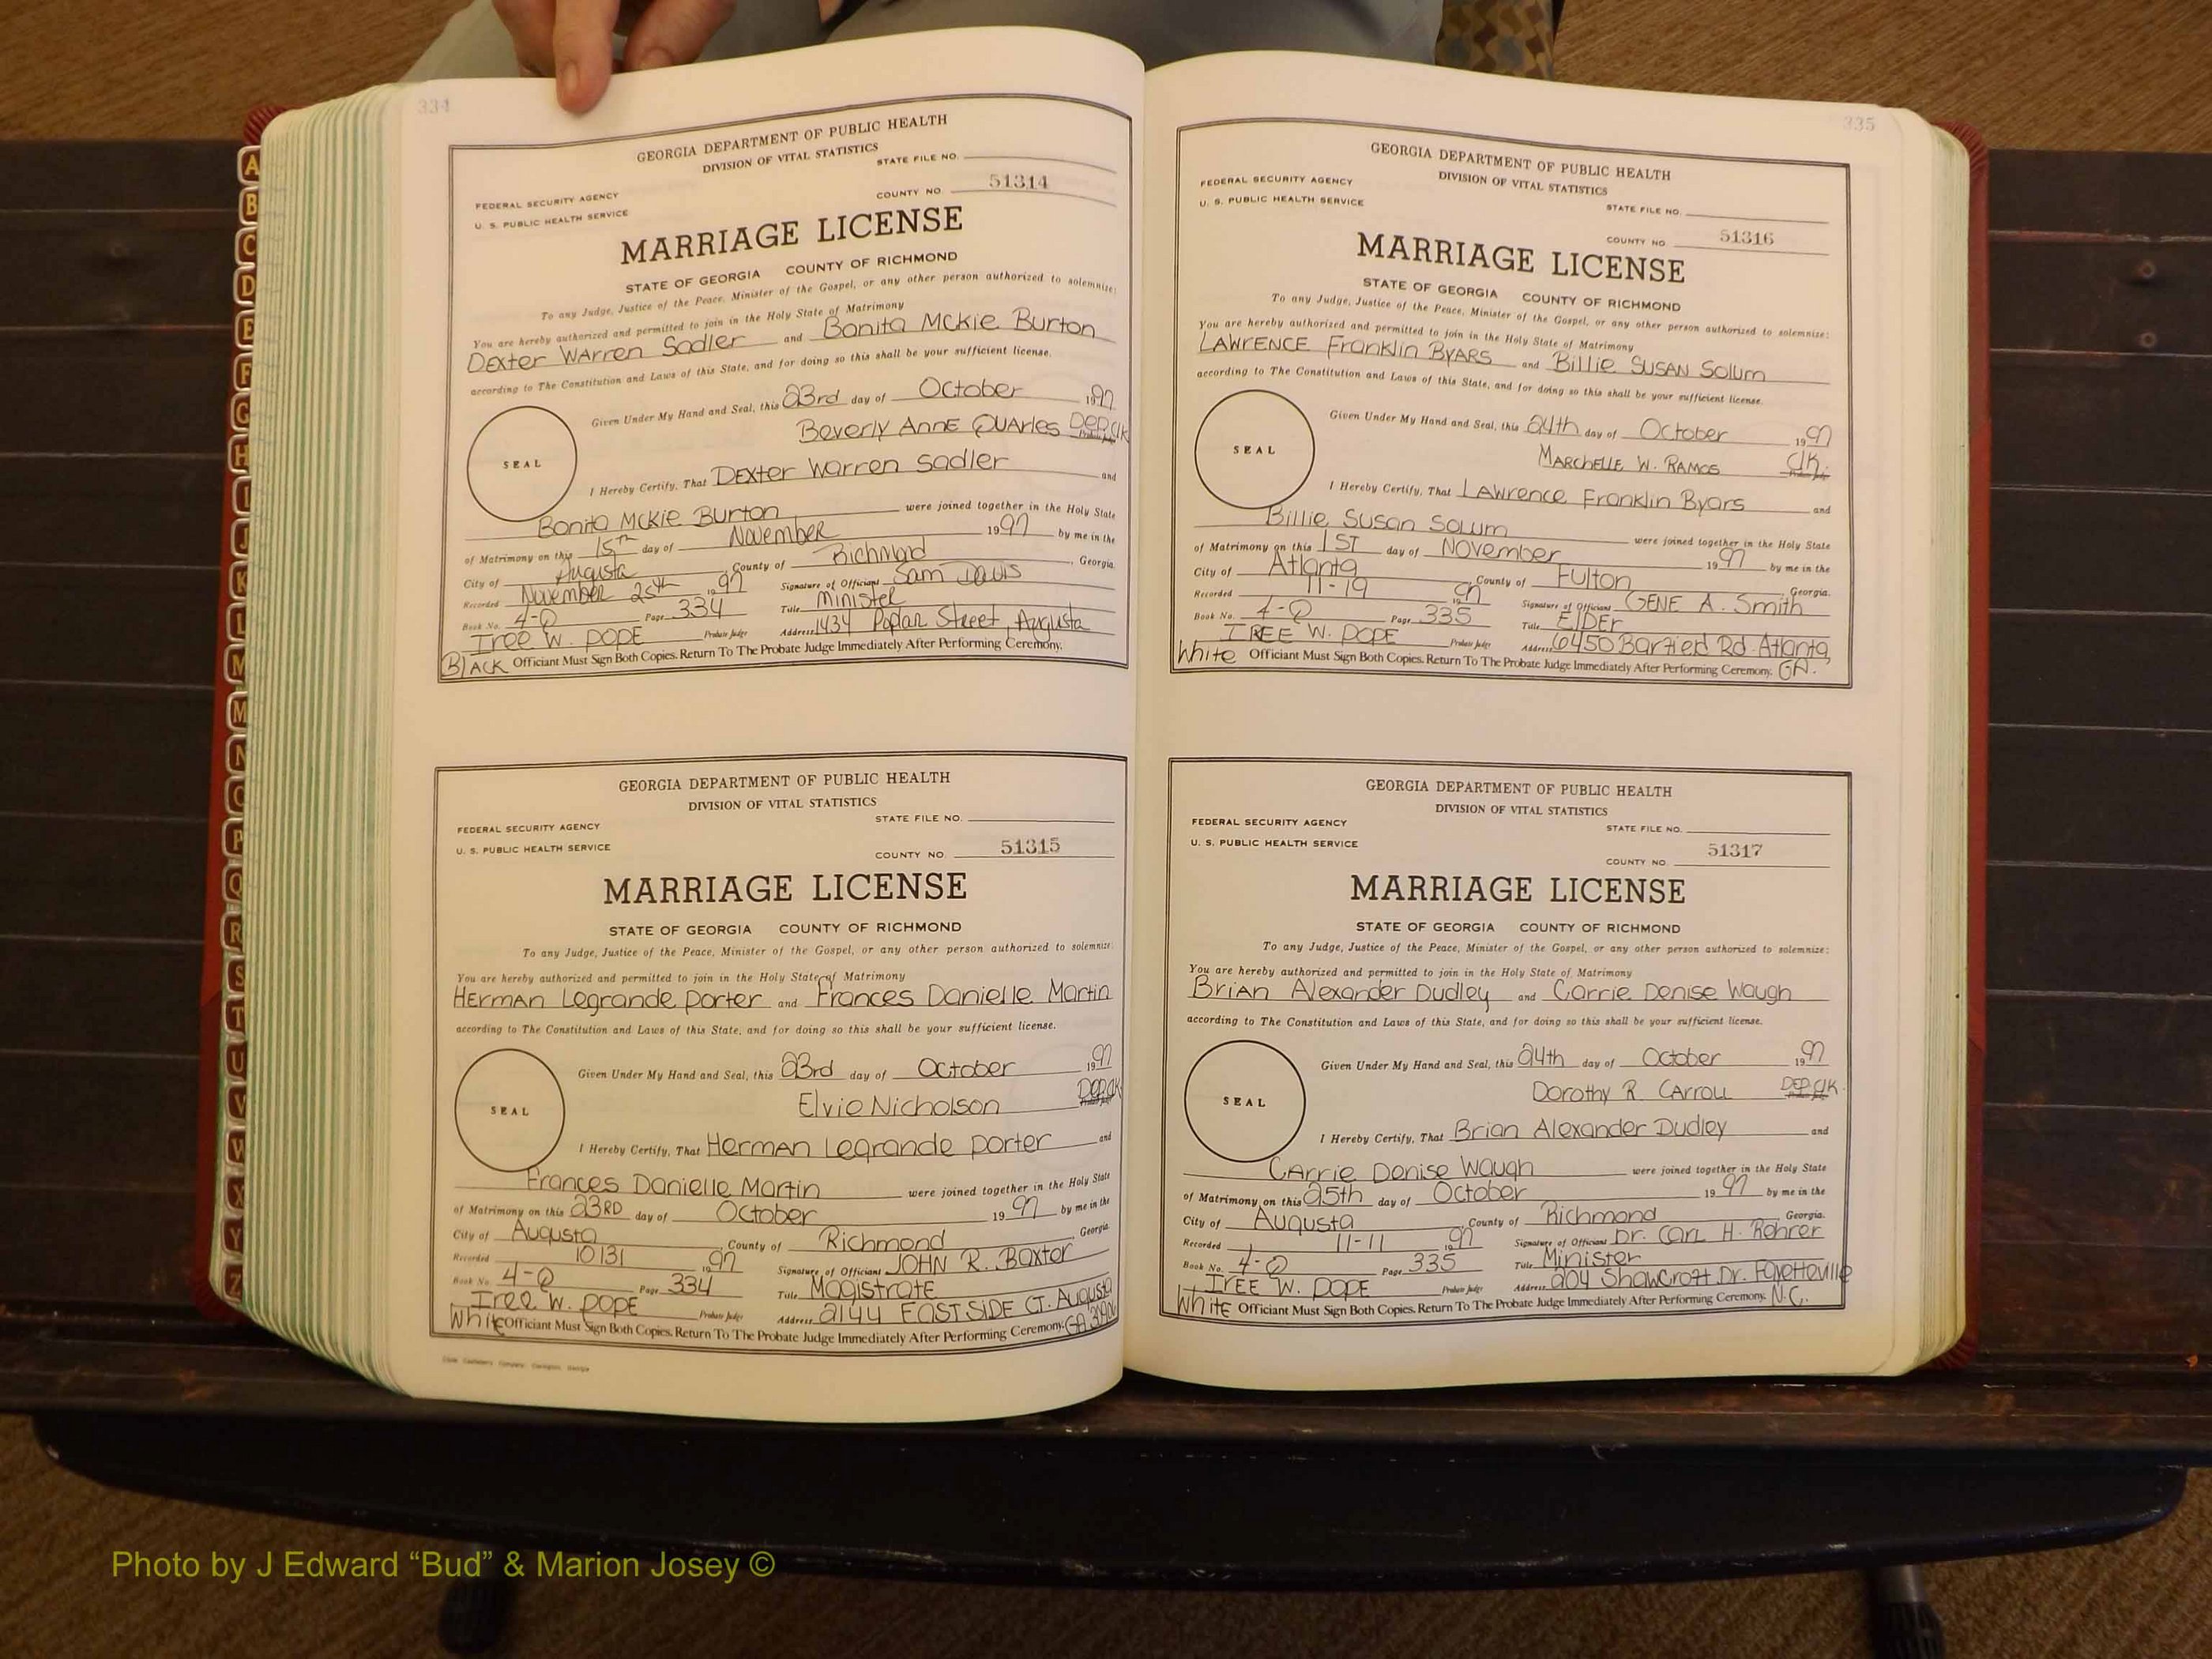 334
GEORGIA DEPARTMENT OF PUBLIC HEALTH
DIVISION OF VITAL STATISTICS
STATE FILE NO.
FEDERAL SECURITY AGENCY
U. S. PUBLIC HEALTH SERVICE
COUNTY NO. 51314
MARRIAGE LICENSE
STATE OF GEORGIA COUNTY OF RICHMOND
To any Judge, Justice of the Peace, Minister of the Gospel, or any other person authorized to solemnize:
You are hereby authorized and permitted to join in the Holy State of Matrimony
Dexter Warren Sadler and Bonita McKie Burton
according to The Constitution and Laws of this State, and for doing so this shall be your sufficient license.
Given Under My Hand and Seal, this 23rd day of October 1997
Beverly Anne Quarles Dep. Clk
SEAL
I Hereby Certify, That Dexter Warren Sadler and
Bonita McKie Burton were joined together in the Holy State
of Matrimony on this 15th day of November 1997 by me in the
City of Augusta, County of Richmond, Georgia.
Recorded November 25th 1997 Signature of Officiant Sam Davis
Book No. 4-Q Page 334 Title Minister
Iree W. Pope Probate Judge Address 1434 Poplar Street, Augusta
Black Officiant Must Sign Both Copies. Return To The Probate Judge Immediately After Performing Ceremony.
GEORGIA DEPARTMENT OF PUBLIC HEALTH
DIVISION OF VITAL STATISTICS
STATE FILE NO.
FEDERAL SECURITY AGENCY
U. S. PUBLIC HEALTH SERVICE
COUNTY NO. 51315
MARRIAGE LICENSE
STATE OF GEORGIA COUNTY OF RICHMOND
To any Judge, Justice of the Peace, Minister of the Gospel, or any other person authorized to solemnize:
You are hereby authorized and permitted to join in the Holy State of Matrimony
Herman Legrande Porter and Frances Danielle Martin
according to The Constitution and Laws of this State, and for doing so this shall be your sufficient license.
Given Under My Hand and Seal, this 23rd day of October 1997
Elvie Nicholson Dep. Clk
SEAL
I Hereby Certify, That Herman Legrande Porter and
Frances Danielle Martin were joined together in the Holy State
of Matrimony on this 23RD day of October 1997 by me in the
City of Augusta, County of Richmond Georgia.
Recorded 10131 1997 Signature of Officiant JOHN R. Baxter
Book No. 4-Q Page 334 Title Magistrate
Iree W. Pope Probate Judge Address 2144 EASTSIDE CT. Augusta
White Officiant Must Sign Both Copies. Return To The Probate Judge Immediately After Performing Ceremony. GA
335
GEORGIA DEPARTMENT OF PUBLIC HEALTH
DIVISION OF VITAL STATISTICS
FEDERAL SECURITY AGENCY
U. S. PUBLIC HEALTH SERVICE
STATE FILE NO.
COUNTY NO. 51316
MARRIAGE LICENSE
STATE OF GEORGIA COUNTY OF RICHMOND
To any Judge, Justice of the Peace, Minister of the Gospel, or any other person authorized to solemnize:
You are hereby authorized and permitted to join in the Holy State of Matrimony
LAWRENCE Franklin BYARS and Billie SUSAN Solum
according to The Constitution and Laws of this State, and for doing so this shall be your sufficient license.
Given Under My Hand and Seal, this 24th day of October 1997
Marchelle W. Ramos Clk.
SEAL
I Hereby Certify, That Lawrence Franklin Byars and
Billie Susan Solum were joined together in the Holy State
of Matrimony on this 1ST day of November 1997 by me in the
City of Atlanta, County of Fulton Georgia.
Recorded 11-19 1997 Signature of Officiant GENE A. Smith
Book No. 4-Q Page 335 Title Elder
IREE W. POPE Probate Judge Address 6450 Barfied Rd. Atlanta,
White Officiant Must Sign Both Copies. Return To The Probate Judge Immediately After Performing Ceremony. GA.
GEORGIA DEPARTMENT OF PUBLIC HEALTH
DIVISION OF VITAL STATISTICS
FEDERAL SECURITY AGENCY
STATE FILE NO.
U. S. PUBLIC HEALTH SERVICE
COUNTY NO. 51317
MARRIAGE LICENSE
STATE OF GEORGIA COUNTY OF RICHMOND
To any Judge, Justice of the Peace, Minister of the Gospel, or any other person authorized to solemnize:
You are hereby authorized and permitted to join in the Holy State of Matrimony
Brian Alexander Dudley and Carrie Denise Waugh
according to The Constitution and Laws of this State, and for doing so this shall be your sufficient license.
Given Under My Hand and Seal, this 24th day of October 1997
Dorothy R. Carroll Dep. Clk.
SEAL
I Hereby Certify, That Brian Alexander Dudley and
Carrie Denise Waugh were joined together in the Holy State
of Matrimony on this 25th day of October 1997 by me in the
City of Augusta, County of Richmond Georgia.
Recorded 11-11 1997 Signature of Officiant Dr. Carl H. Rohrer
Book No. 4-Q Page 335 Title Minister
IREE W. POPE Probate Judge Address 204 Shawcroft Dr. Fayetteville
White Officiant Must Sign Both Copies. Return To The Probate Judge Immediately After Performing Ceremony. N.C.
A
B
C
D
E
F
G
H
I
J
K
L
M
M
N
O
P
Q
R
S
T
U
V
W
X
Y
Z
Photo by J Edward “Bud” & Marion Josey ©